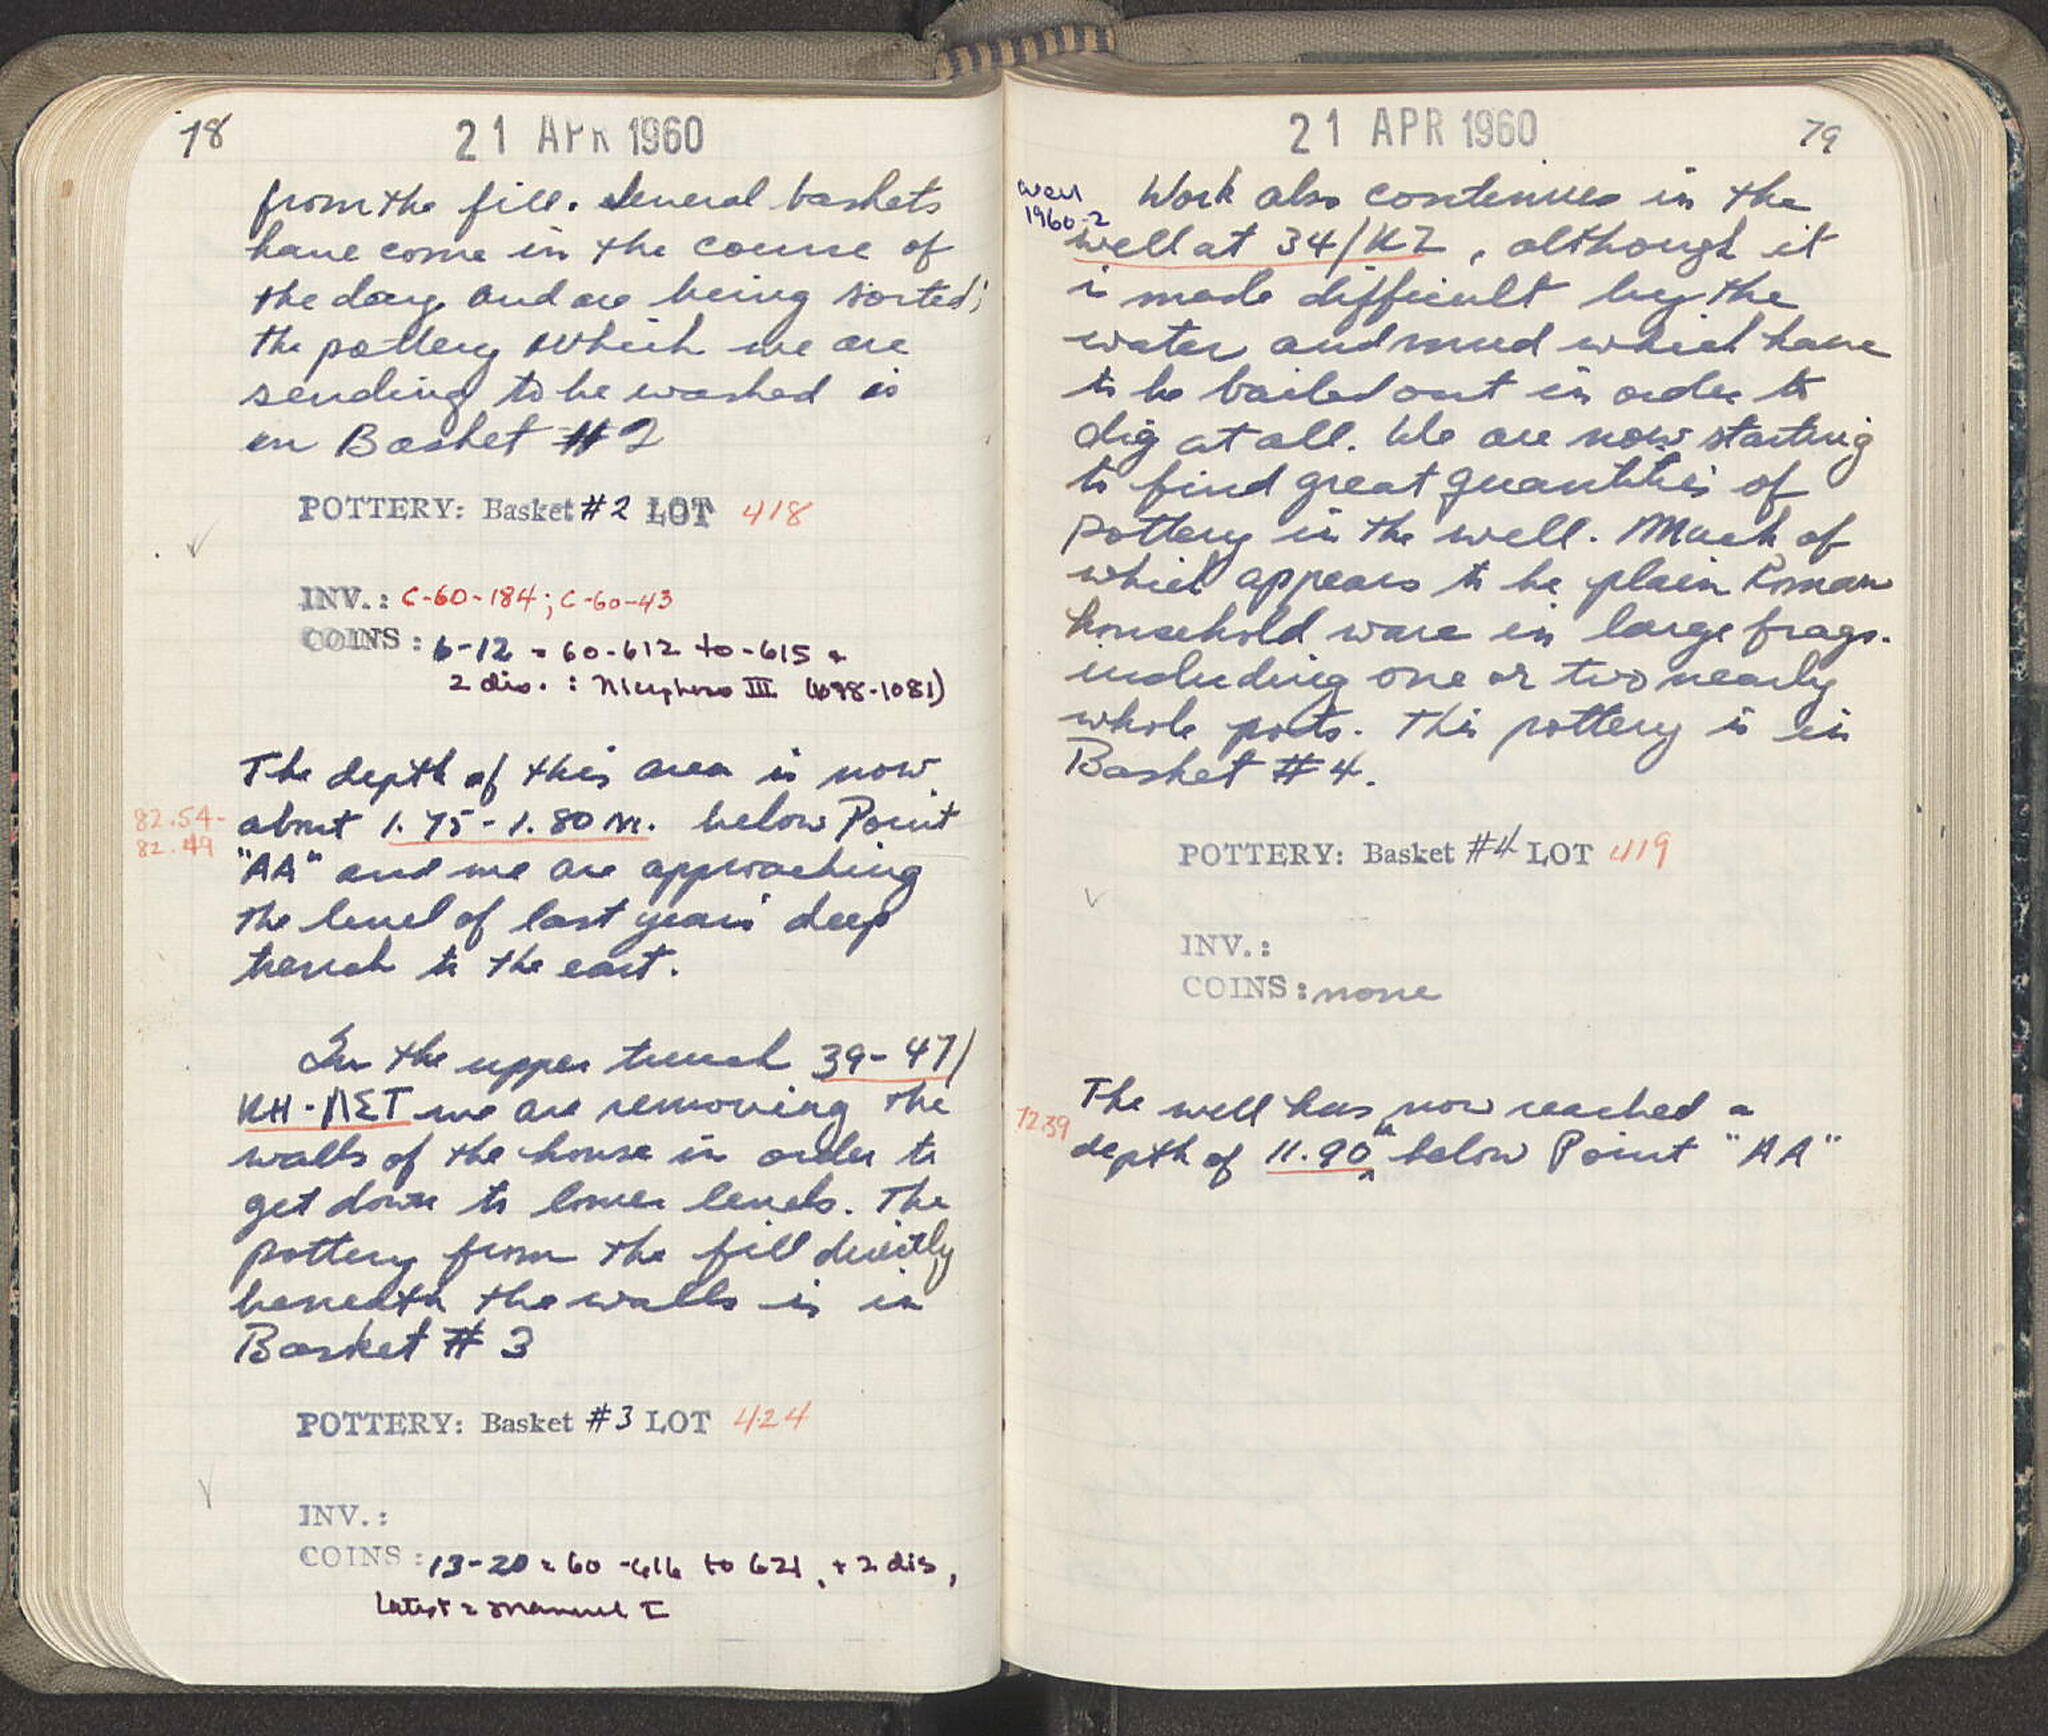 78
21 APR 1960
from the fill. Several baskets
have come in the course of
the day and are being sorted;
the pottery which we are
sending to be washed is
in Basket #2
POTTERY: Basket #2 LOT 418
INV.: C-60-184; C-60-43
COINS: 6-12 = 60-612 to -615 +
2 dis. : Nicephoros III (1078-1081)
The depth of this area is now
82.54-
82.49
about 1.75-1.80 m. below Point
"AA" and we are approaching
the level of last year's deep
trench to the east.
In the upper trench 39-47/
KH-ΛΣΤ we are removing the
walls of the house in order to
get down to lower levels. The
pottery from the fill directly
beneath the walls is in
Basket #3
POTTERY: Basket #3 LOT 424
INV.:
COINS: 13-20 = 60-616 to 621, + 2 dis,
latest = Manuel I
21 APR 1960
79
Well
1960-2
Work also continues in the
well at 34/KZ, although it
is made difficult by the
water and mud which have
to be bailed out in order to
dig at all. We are now starting
to find great quantities of
pottery in the well. Much of
which appears to be plain Roman
household ware in large frags.
including one or two nearly
whole pots. This pottery is in
Basket #4.
POTTERY: Basket #4 LOT 419
INV.:
COINS: none
The well has now reached a
72.39
depth of 11.90 m below Point "AA"